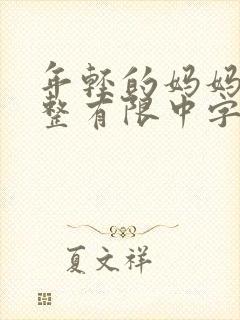 年轻的妈妈
整有限中字
夏文祥